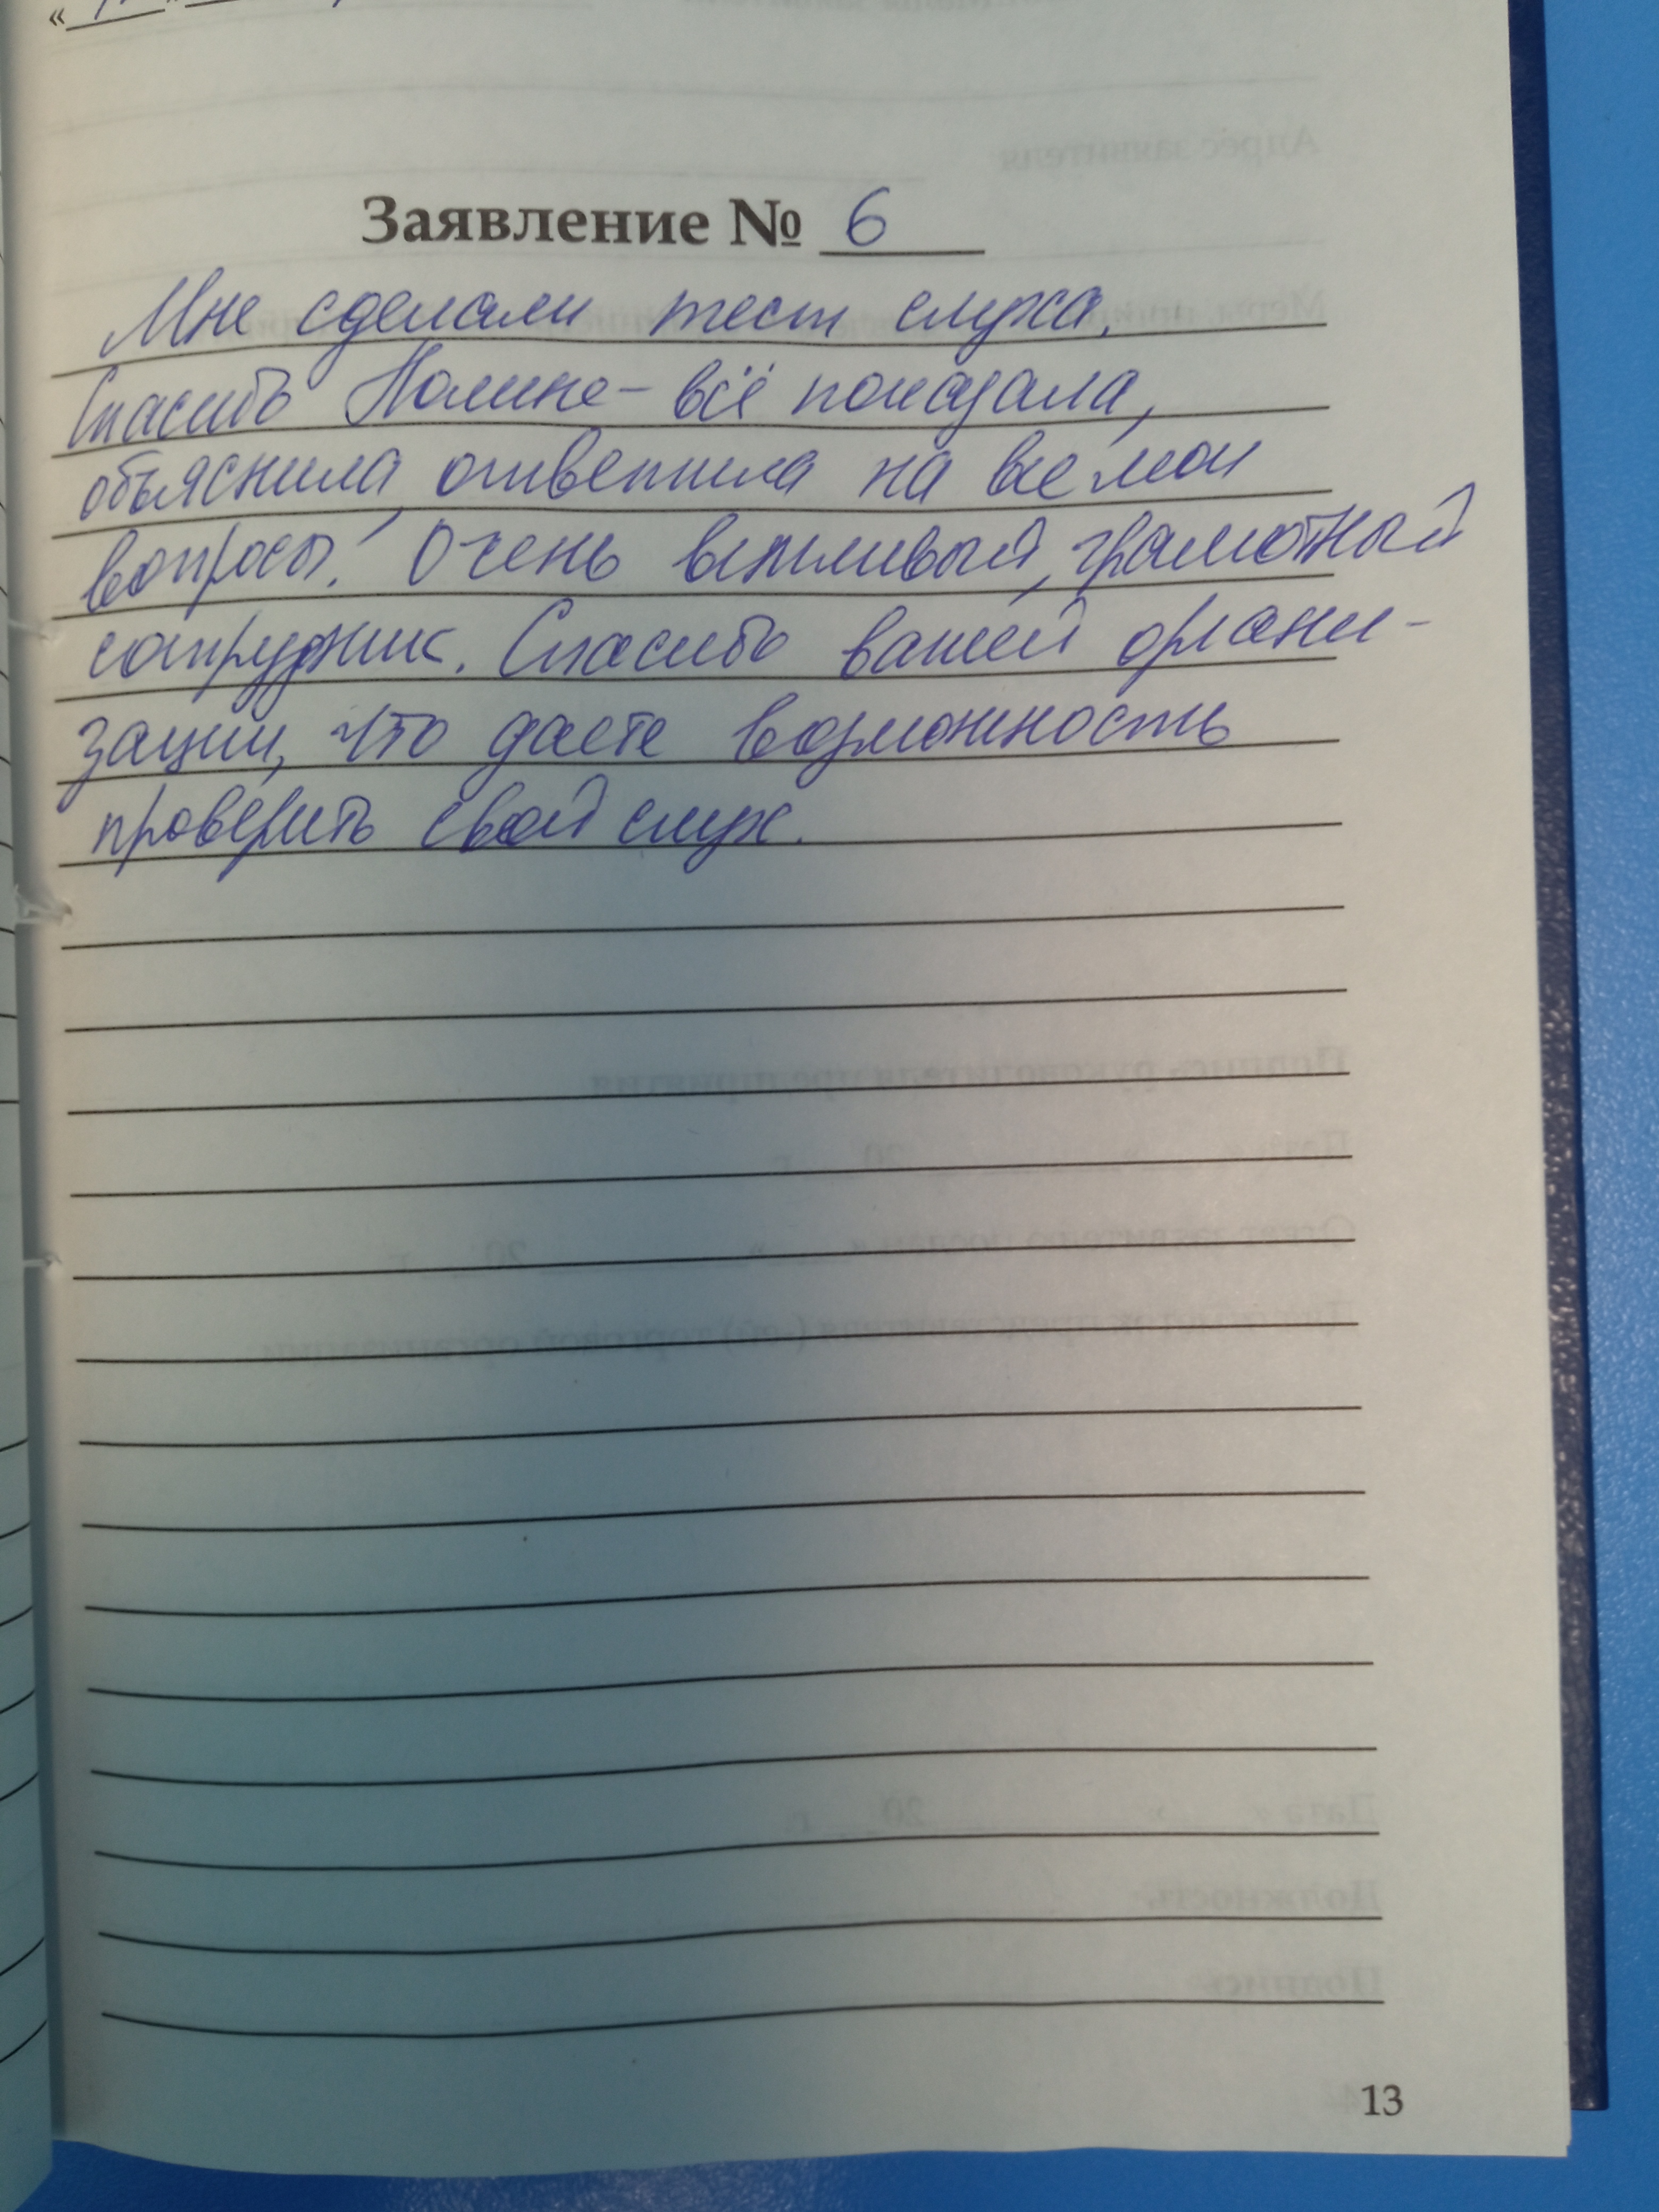 Заявление № 6
Мне сделали тест слуха.
Спасибо Полине - всё показала,
объяснила, ответила на все мои
вопросы! Очень вежливый, грамотный
сотрудник. Спасибо вашей органи-
зации, что даете возможность
проверить свой слух.
13